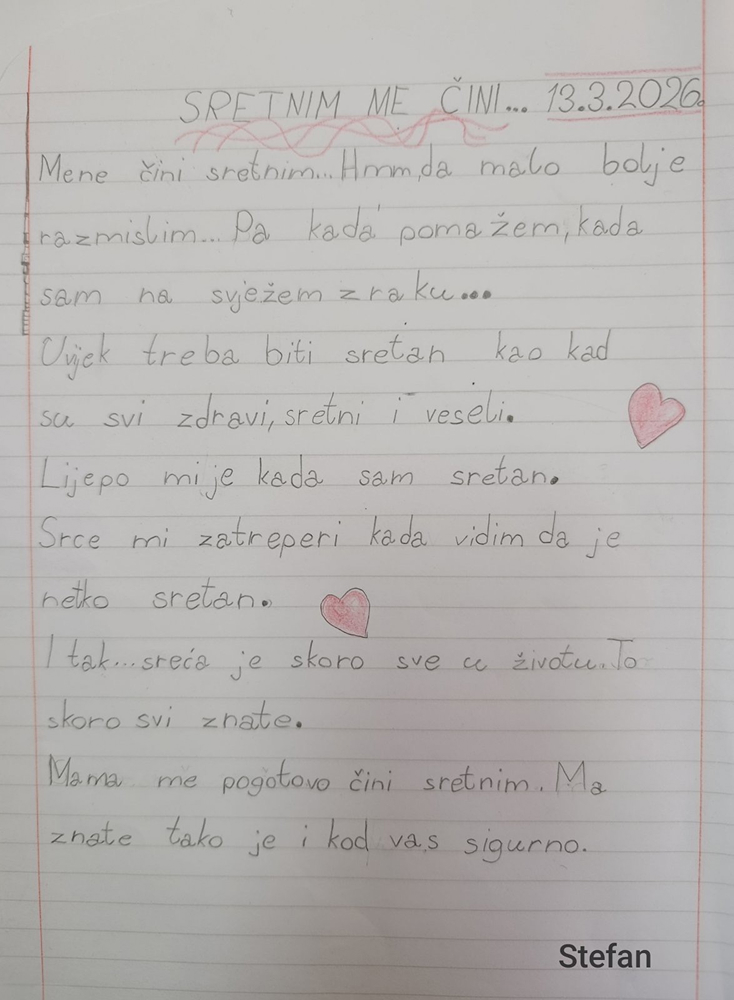 SRETNIM ME ČINI... 13.3.2026.
Mene čini sretnim... Hmm, da malo bolje
razmislim... Pa kada pomažem, kada
sam na svježem zraku...
Uvjek treba biti sretan kao kad
su svi zdravi, sretni i veseli.
Lijepo mi je kada sam sretan.
Srce mi zatreperi kada vidim da je
netko sretan.
I tak... sreća je skoro sve u životu. To
skoro svi znate.
Mama me pogotovo čini sretnim. Ma
znate tako je i kod vas sigurno.
Stefan